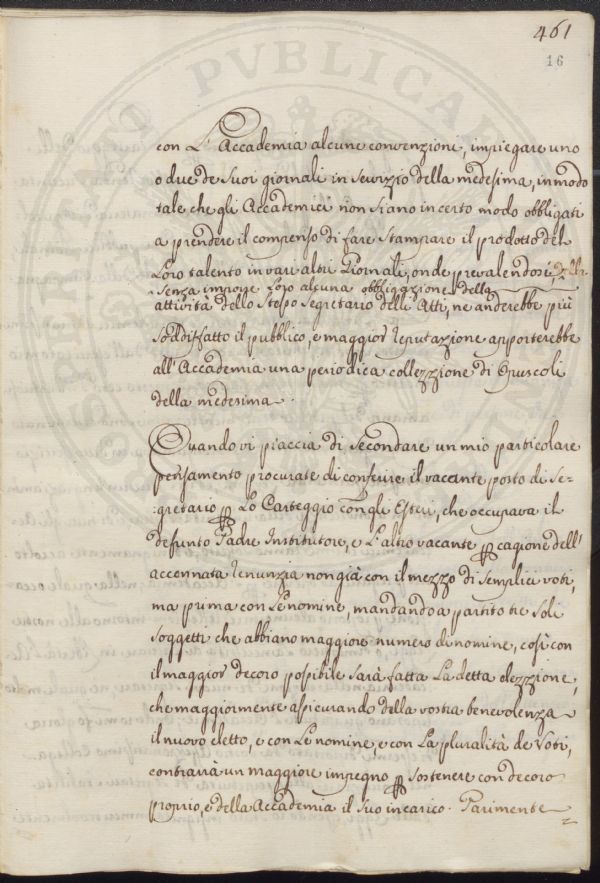 461
16
PROSPERITATI PUBLICAE
con L'Accademia alcune convenzioni, impiegare uno
o due de Suoi giornali in Servizio della medesima, in modo
tale che gli Accademici non Siano in certo modo obbligati
a prendere il compenso di fare Stampare il prodotto del
Loro talento in vari altri Giornali, onde prevalendosi, Della
Senza imporre Loro alcuna obbligazione della
attività dello Stesso Segretario delle Atti, ne anderebbe più
Soddisfatto il pubblico, e maggior reputazione apporterebbe
all'Accademia una periodica collezzione di Opuscoli
della medesima.
Quando vi piaccia di Secondare un mio particolare
pensamento procurate di conferire il vacante posto di Se-
:gretario p Lo Carteggio con gli Esteri, che occupava il
defunto Padre Institutore, e L'altro vacante p cagione dell'
accennata renunzia non già con il mezzo di Semplici voti,
ma prima con Le nomine, mandando a partito tre Soli
Soggetti che abbiano maggiore numero di nomine, così con
il maggior decoro possibile Sarà fatta La detta elezzione,
che maggiormente assicurando della vostra benevolenza
il nuovo eletto, e con Le nomine, e con La pluralità de Voti,
contrarrà un maggiore impegno p Sostenere con decoro
proprio, e della Accademia il Suo incarico. Parimente